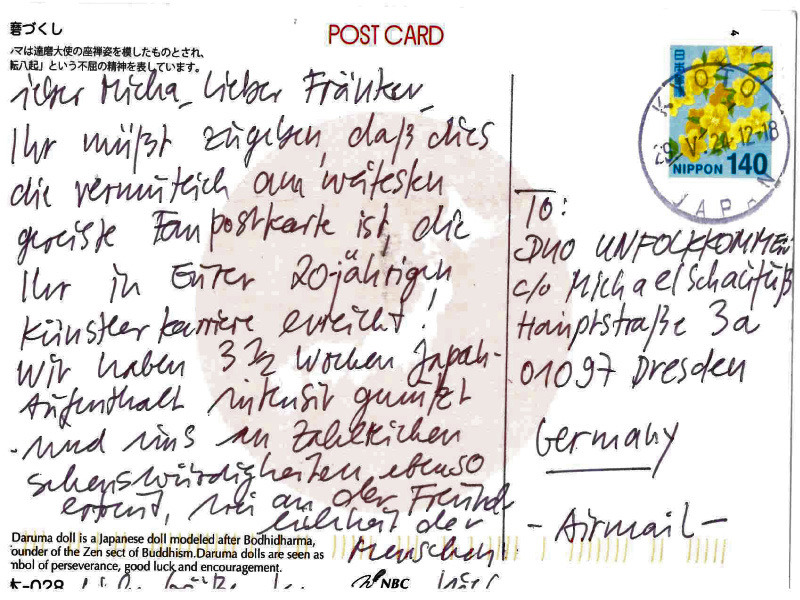 磨づくし
POST CARD
マは達磨大使の座禅姿を模したものとされ、
転八起」という不屈の精神を表しています。
lieber Micha, lieber Fränker,
Ihr müßt zugeben, daß dies
die vermutlich am weitesten
gereiste Fanpostkarte ist, die
Ihr in Eurer 20-jährigen
Künstlerkarriere erreicht!
Wir haben 3 ½ Wochen Japan-
Aufenthalt intensiv genutzt
und uns an zahlreichen
Sehenswürdigkeiten ebenso
erfreut, wie an der Freund-
lichkeit der
Menschen!
Daruma doll is a Japanese doll modeled after Bodhidharma,
ounder of the Zen sect of Buddhism.Daruma dolls are seen as
mbol of perseverance, good luck and encouragement.
K-028
NBC
日本郵便
NIPPON 140
KYOTO
29. V. 24. 12-18
JAPAN
TO:
DUO UNFOLKKOMMEN
c/o Michael Schaufuß
Hauptstraße 3a
01097 Dresden
Germany
- Airmail -